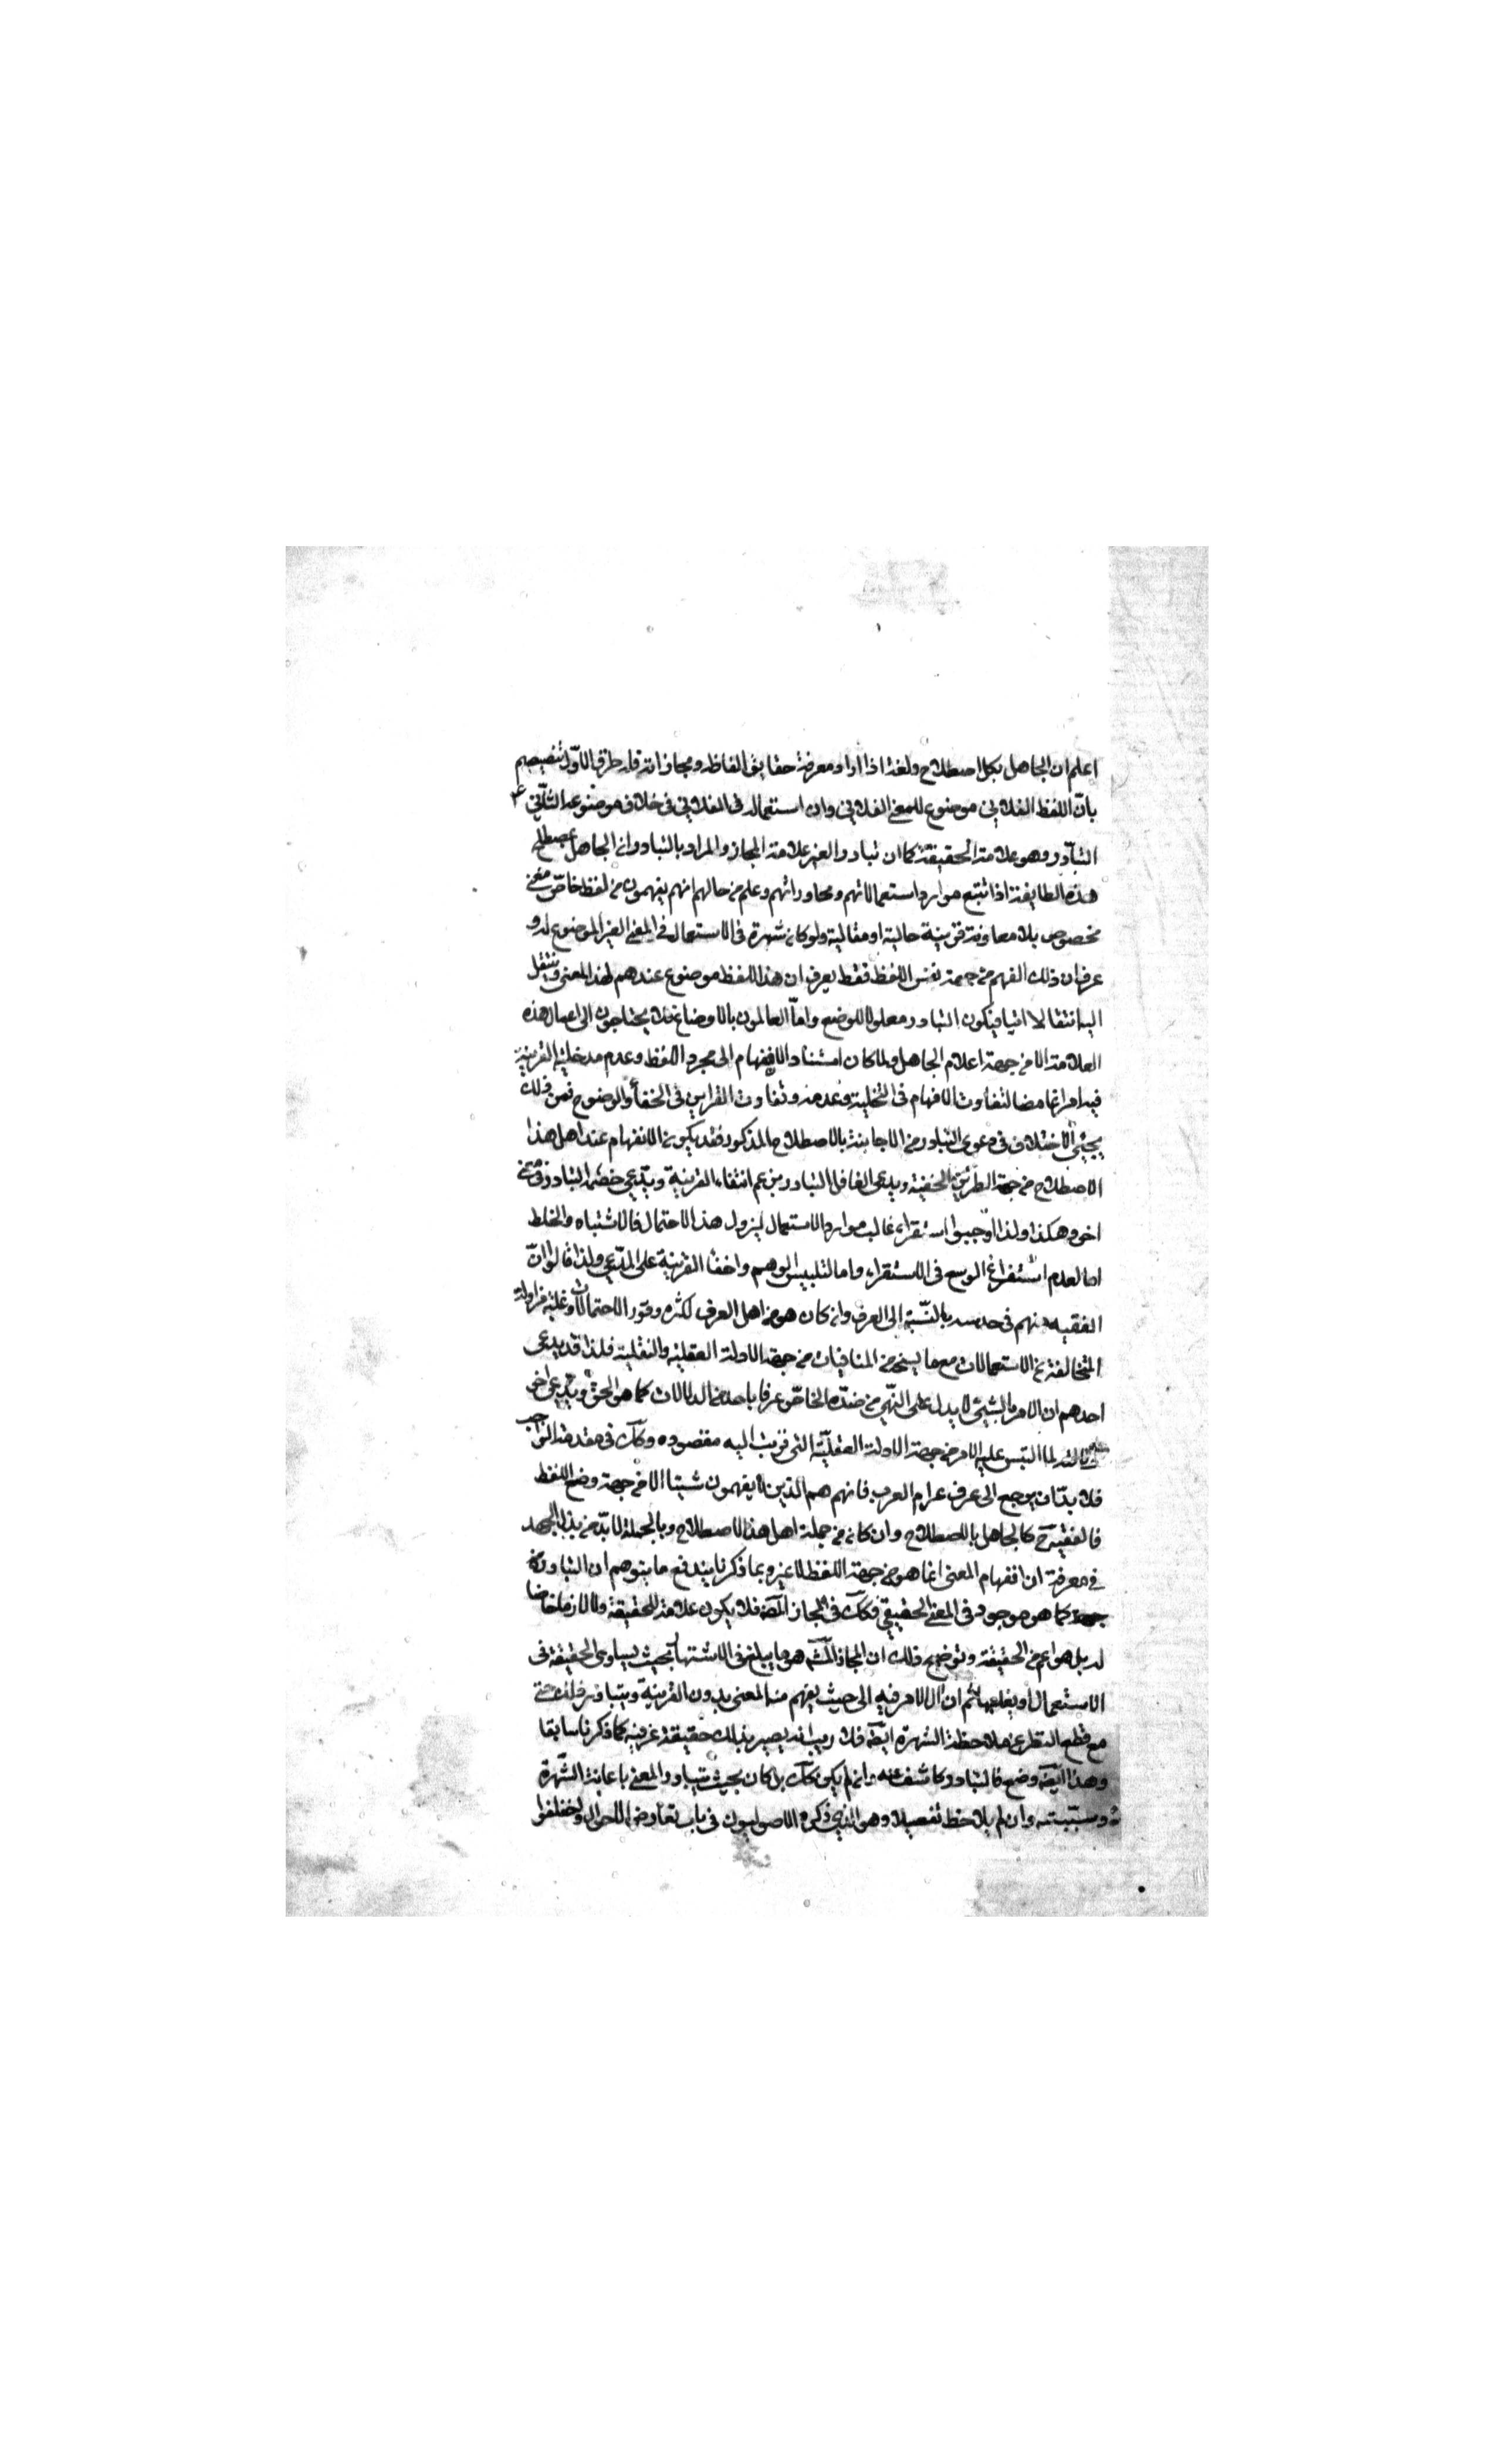 اعلم ان الجاهل بكل اصطلاح ولغة اذا اراد معرفة حقايق الفاظه ومجازاته فله طرق الاوّل تنصيصهم
بانّ اللفظ الفلاني موضوع للمعنى الفلاني وان استعماله في الفلاني في خلاف موضوعه الثاني
التبادر وهو علامة الحقيقة كما ان تبادر الغير علامة المجاز والمراد بالتبادر ان الجاهل بمصطلح
هذه الطايفة اذا تتبع موارد استعمالاتهم ومحاوراتهم وعلم من حالهم انهم يفهمون من لفظ خاصّ معنى
مخصوص بلا معاونة قرينة حالية او مقالية ولو كان شهرة في الاستعمال في المعنى الغير الموضوع له و
عرف ان ذلك الفهم من جهة نفس اللفظ فقط يعرف ان هذا اللفظ موضوع عندهم لهذا المعنى وينتقل
اليه انتقالا انيا فيكون التبادر معلولا للوضع وامّا العالمون بالاوضاع فلا يحتاجون الى اعمال هذه
العلامة الا من جهة اعلام الجاهل ولما كان استناد الانفهام الى مجرد اللفظ وعدم مدخلية القرينة
فيه امرا غامضا لتفاوت الافهام في التخلية وعدمه وتفاوت القراين في الخفاء والوضوح فمن ذلك
يجيئ الاختلاف في دعوى التبادر من الاجانبة بالاصطلاح المذكور فقد يكون الانفهام عند اهل هذا
الاصطلاح من جهة القرينة الخفية ويدعى الغافل التبادر بزعم انتفاء القرينة ويدّعي خصمه التبادر في معنى
اخر وهكذا ولذا اوجبوا استقراء غالب موارد الاستعمال ليزول هذا الاحتمال فالاشتباه والخلط
اما لعدم استفراغ الوسع في الاستقراء واما لتلبيس الوهم واخفا القرينة على المدّعي ولذا قالوا انّ
الفقيه متهم في حدسه بالنّسبة الى العرف وان كان هو من اهل العرف لكثرة وفور الاحتمالات وغلبة مزاولة
المتخالفة من الاستعمالات مع ما يسنح من المنافيات من جهة الادلة العقلية والنقلية فلذا قد يدعى
احدهم ان الامر بالشيئ لا يدل على النّهي من ضدّه الخاصّ عرفا باحد من الدلالات كما هو الحق ويدّعي اخر
دلالته لما التبس عليه الامر من جهة الادلة العقليّة التي قربت اليه مقصوده وكك في مقدمة الواجب
فلا بدّ ان يرجع الى عرف عوام العرب فانهم هم الذين لا يفهمون شيئا الا من جهة وضع اللفظ
فالفقيه ح كالجاهل بالاصطلاح وان كان من جملة اهل هذا الاصطلاح وبالجملة لا بدّ من بذل الجهد
في معرفة ان انفهام المعنى انما هو من جهة اللفظ لا غير وبما ذكرنا يندفع ما يتوهم ان التبادر
كما هو موجود في المعنى الحقيقي فكك في المجاز المشهور فلا يكون علامة للحقيقة ولا لازما خاصا
له بل هو اعم من الحقيقة وتوضيح ذلك ان المجاز المشهور هو ما يبلغ في الاشتهار بحيث يساوي الحقيقة في
الاستعمال او يغلبها ثم ان ال الامر فيه الى حيث يفهم منه المعنى بدون القرينة ويتبادر ذلك حتى
مع قطع النظر عن ملاحظة الشهرة ايضا فلا ريب انه يصير بذلك حقيقة عرفية كما ذكرنا سابقا
وهذا ايضا وضع فالتبادر كاشف عنه وان لم يكن كك بل كان بحيث يتبادر المعنى باعانة الشّهرة
وسببيته وان لم يلاحظ تفصيلا وهو الذي ذكره الاصوليون في باب تعارض الاحوال واختلفوا